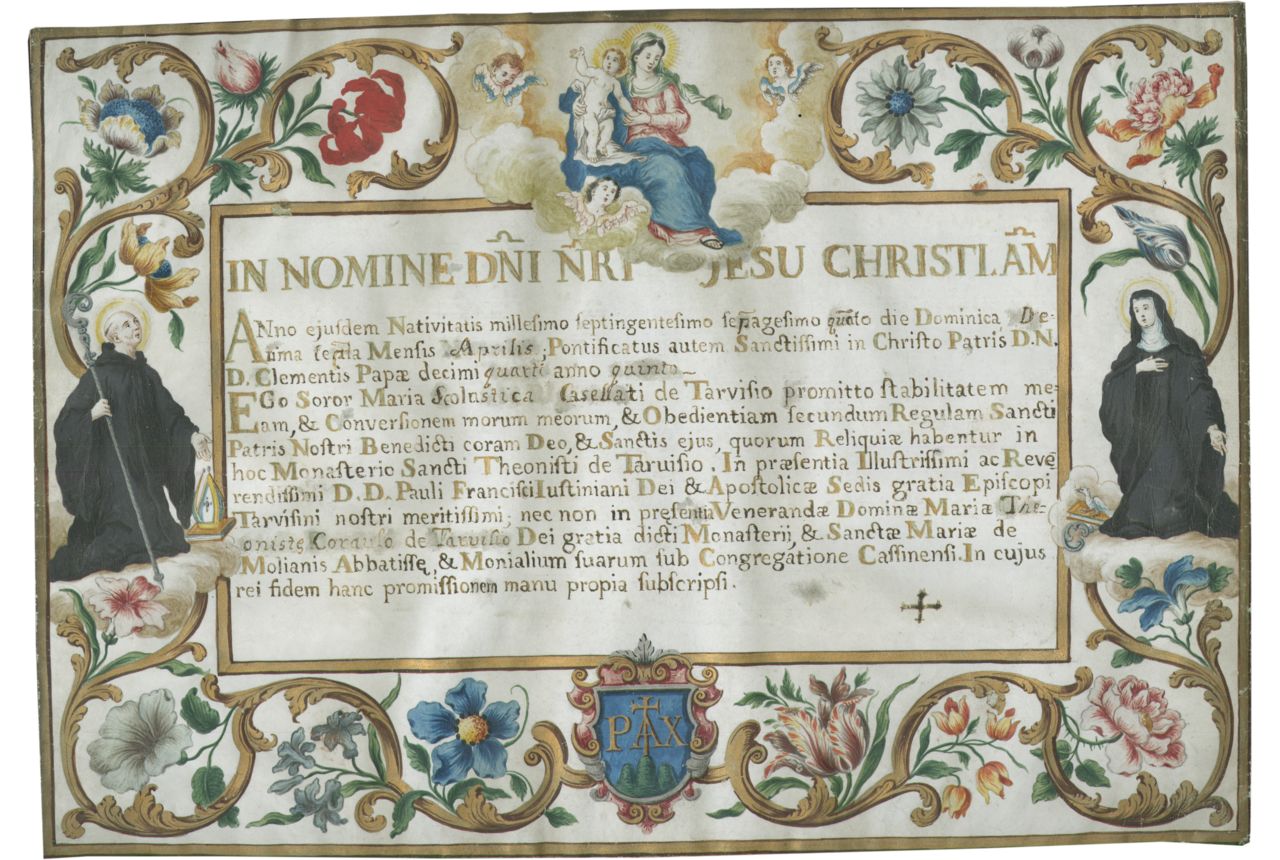 IN NOMINE DÑI ÑRI JESU CHRISTI. AM̃
ANno ejusdem Nativitatis millesimo septingentesimo sep̃agesimo quãto die Dominica De-
cima sep̃la Mensis Aprilis, Pontificatus autem Sanctissimi in Christo Patris D.N.
D. Clementis Papæ decimi quarti anno quinto
EGo Soror Maria Scolastica Casellati de Tarvisio promitto stabilitatem me-
am, & Conversionem morum meorum, & Obedientiam secundum Regulam Sancti
Patris Nostri Benedicti coram Deo, & Sanctis ejus, quorum Reliquiæ habentur in
hoc Monasterio Sancti Theonisti de Tarvisio. In præsentia Illustrissimi ac Reve
rendissimi D.D. Pauli Francisci Iustiniani Dei & Apostolicæ Sedis gratia Episcopi
Tarvisini nostri meritissimi, nec non in presentia Venerandæ Dominæ Mariæ The-
onistę de Tarvisio Dei gratia dicti Monasterij, & Sanctæ Mariæ de
Molianis Abbatissę, & Monialium suarum sub Congregatione Cassinensi. In cujus
rei fidem hanc promissionem manu propia subscripsi.
PAX